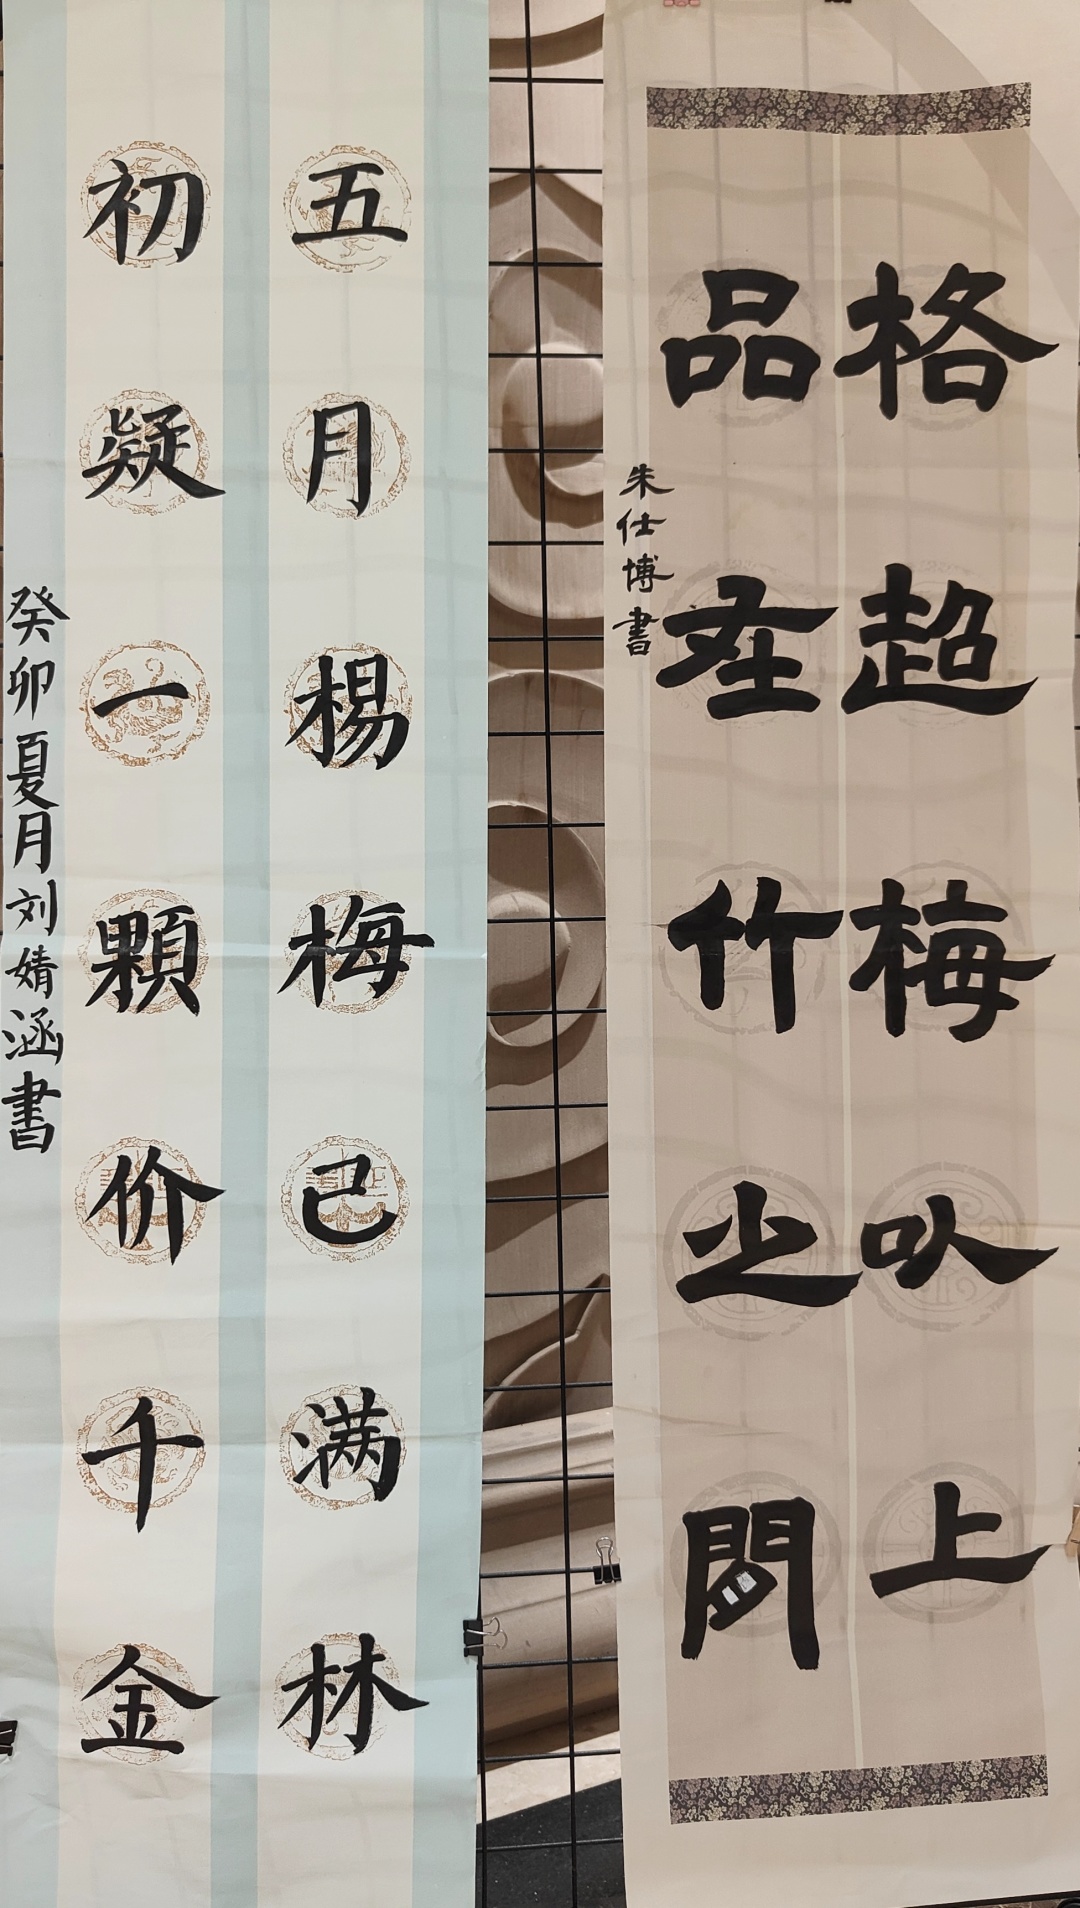 格超梅以上
品在竹之間
朱仕博書
五月楊梅已满林
初凝一顆价千金
癸卯夏月刘婧涵書